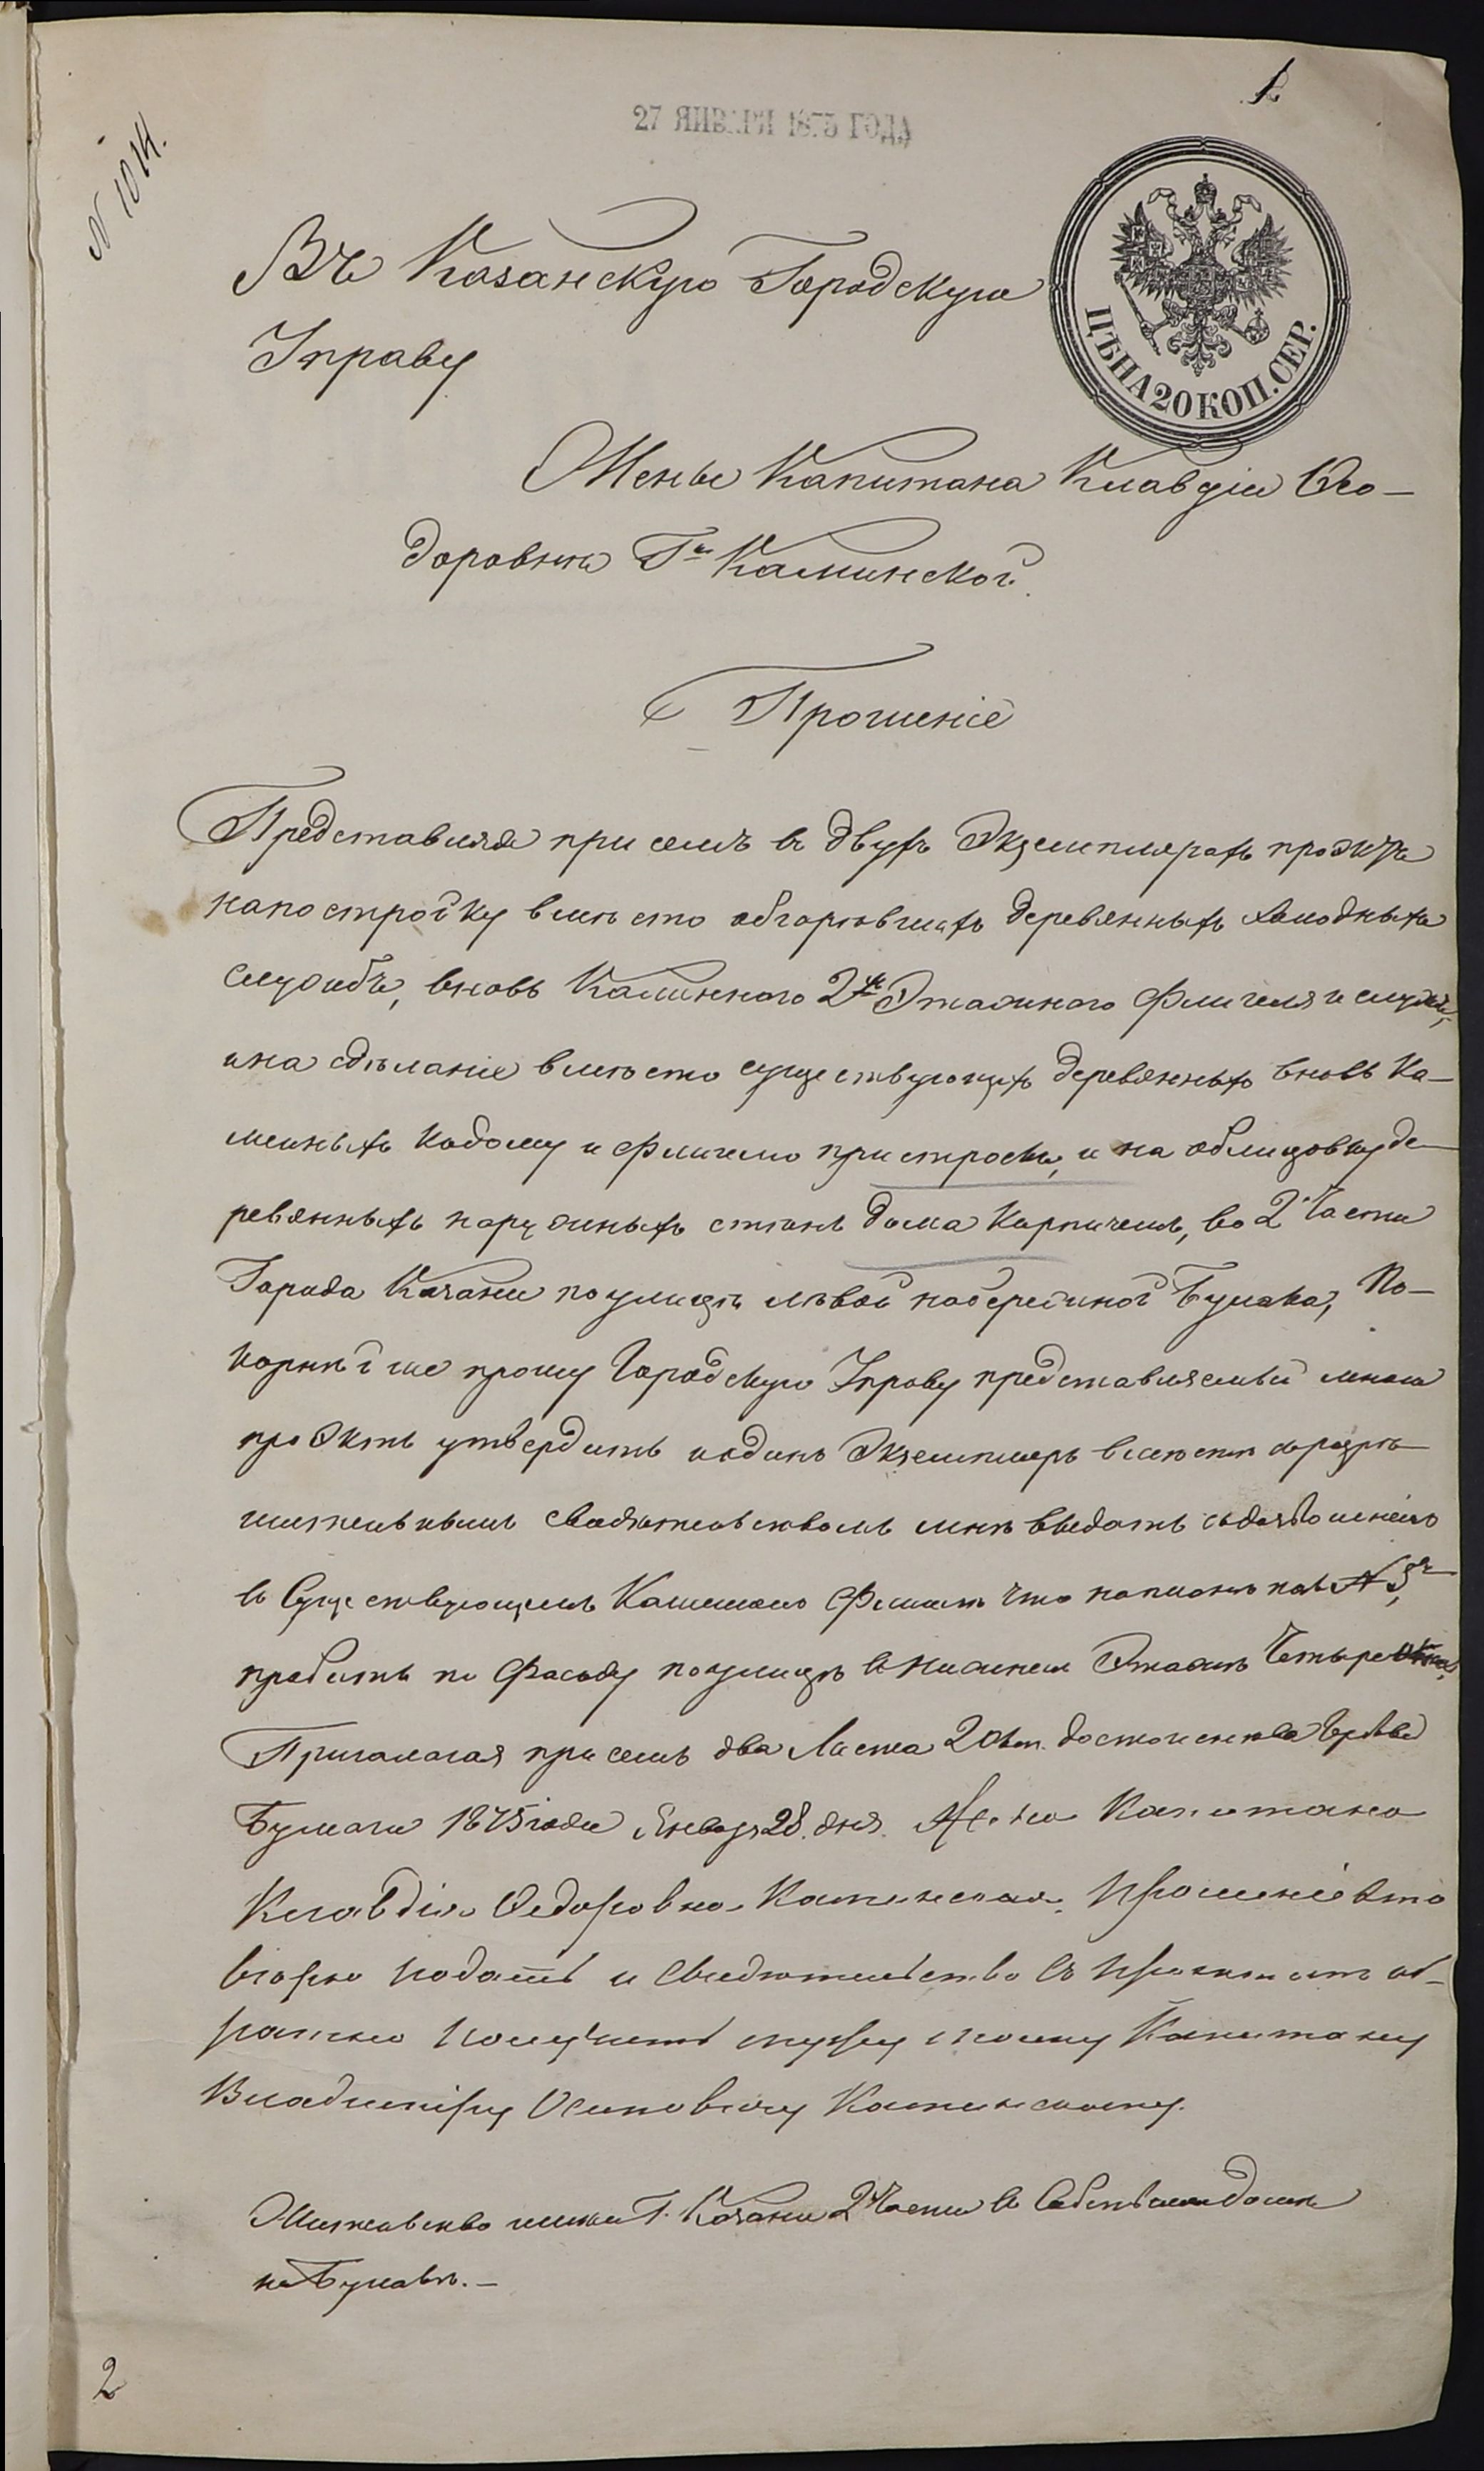 1
27 ЯНВАРЯ 1875 ГОДА
N 1014.
ЦѢНА 20 КОП. СЕР.
Въ Казанскую Городскую
Управу
Жены Капитана Клавдіи Ѳео-
доровны Г-жи Каминской.
Прошеніе
Представляя при семъ въ двухъ Экземплярахъ проэктъ
на постройку вмѣсто обгорѣвшихъ деревянныхъ холодныхъ
службъ, вновь Каменного 2хъ Этажного флигеля и службъ,
и на сдѣланіе вмѣсто существующихъ деревянныхъ вновь Ка-
менныхъ къ дому и флигелю пристроекъ, и на облицовку де-
ревянныхъ наружныхъ стѣнъ дома Кирпичемъ, во 2й Части
Города Казани по улицѣ лѣвой набережной Булака, По-
корнѣйше прошу Городскую Управу представляемый мною
проэктъ утвердить и одинъ Экземпляръ вмѣстѣ съ разрѣ-
шительнымъ свидѣтельствомъ мнѣ выдать съ дозволеніемъ
въ Существующемъ Каменномъ флигелѣ что на планѣ подъ N 5мъ,
пробить по фасаду по улицѣ въ нижнемъ Этажѣ Четыре окна,
Прилагая при семъ два Листа 20 коп. достоинства гербовой
Бумаги 1875 года Января 28 дня. Жена Капитана
Клавдія Ѳедоровна Каминская. Прошеніе это
вѣрю подать и свидѣтельство съ проэктомъ об-
ратно получить мужу моему Капитану
Владиміру Осиповичу Каминскому.
Жительство имѣю Г. Казани 2й Части въ Собственномъ домѣ
на Булакѣ.-
2